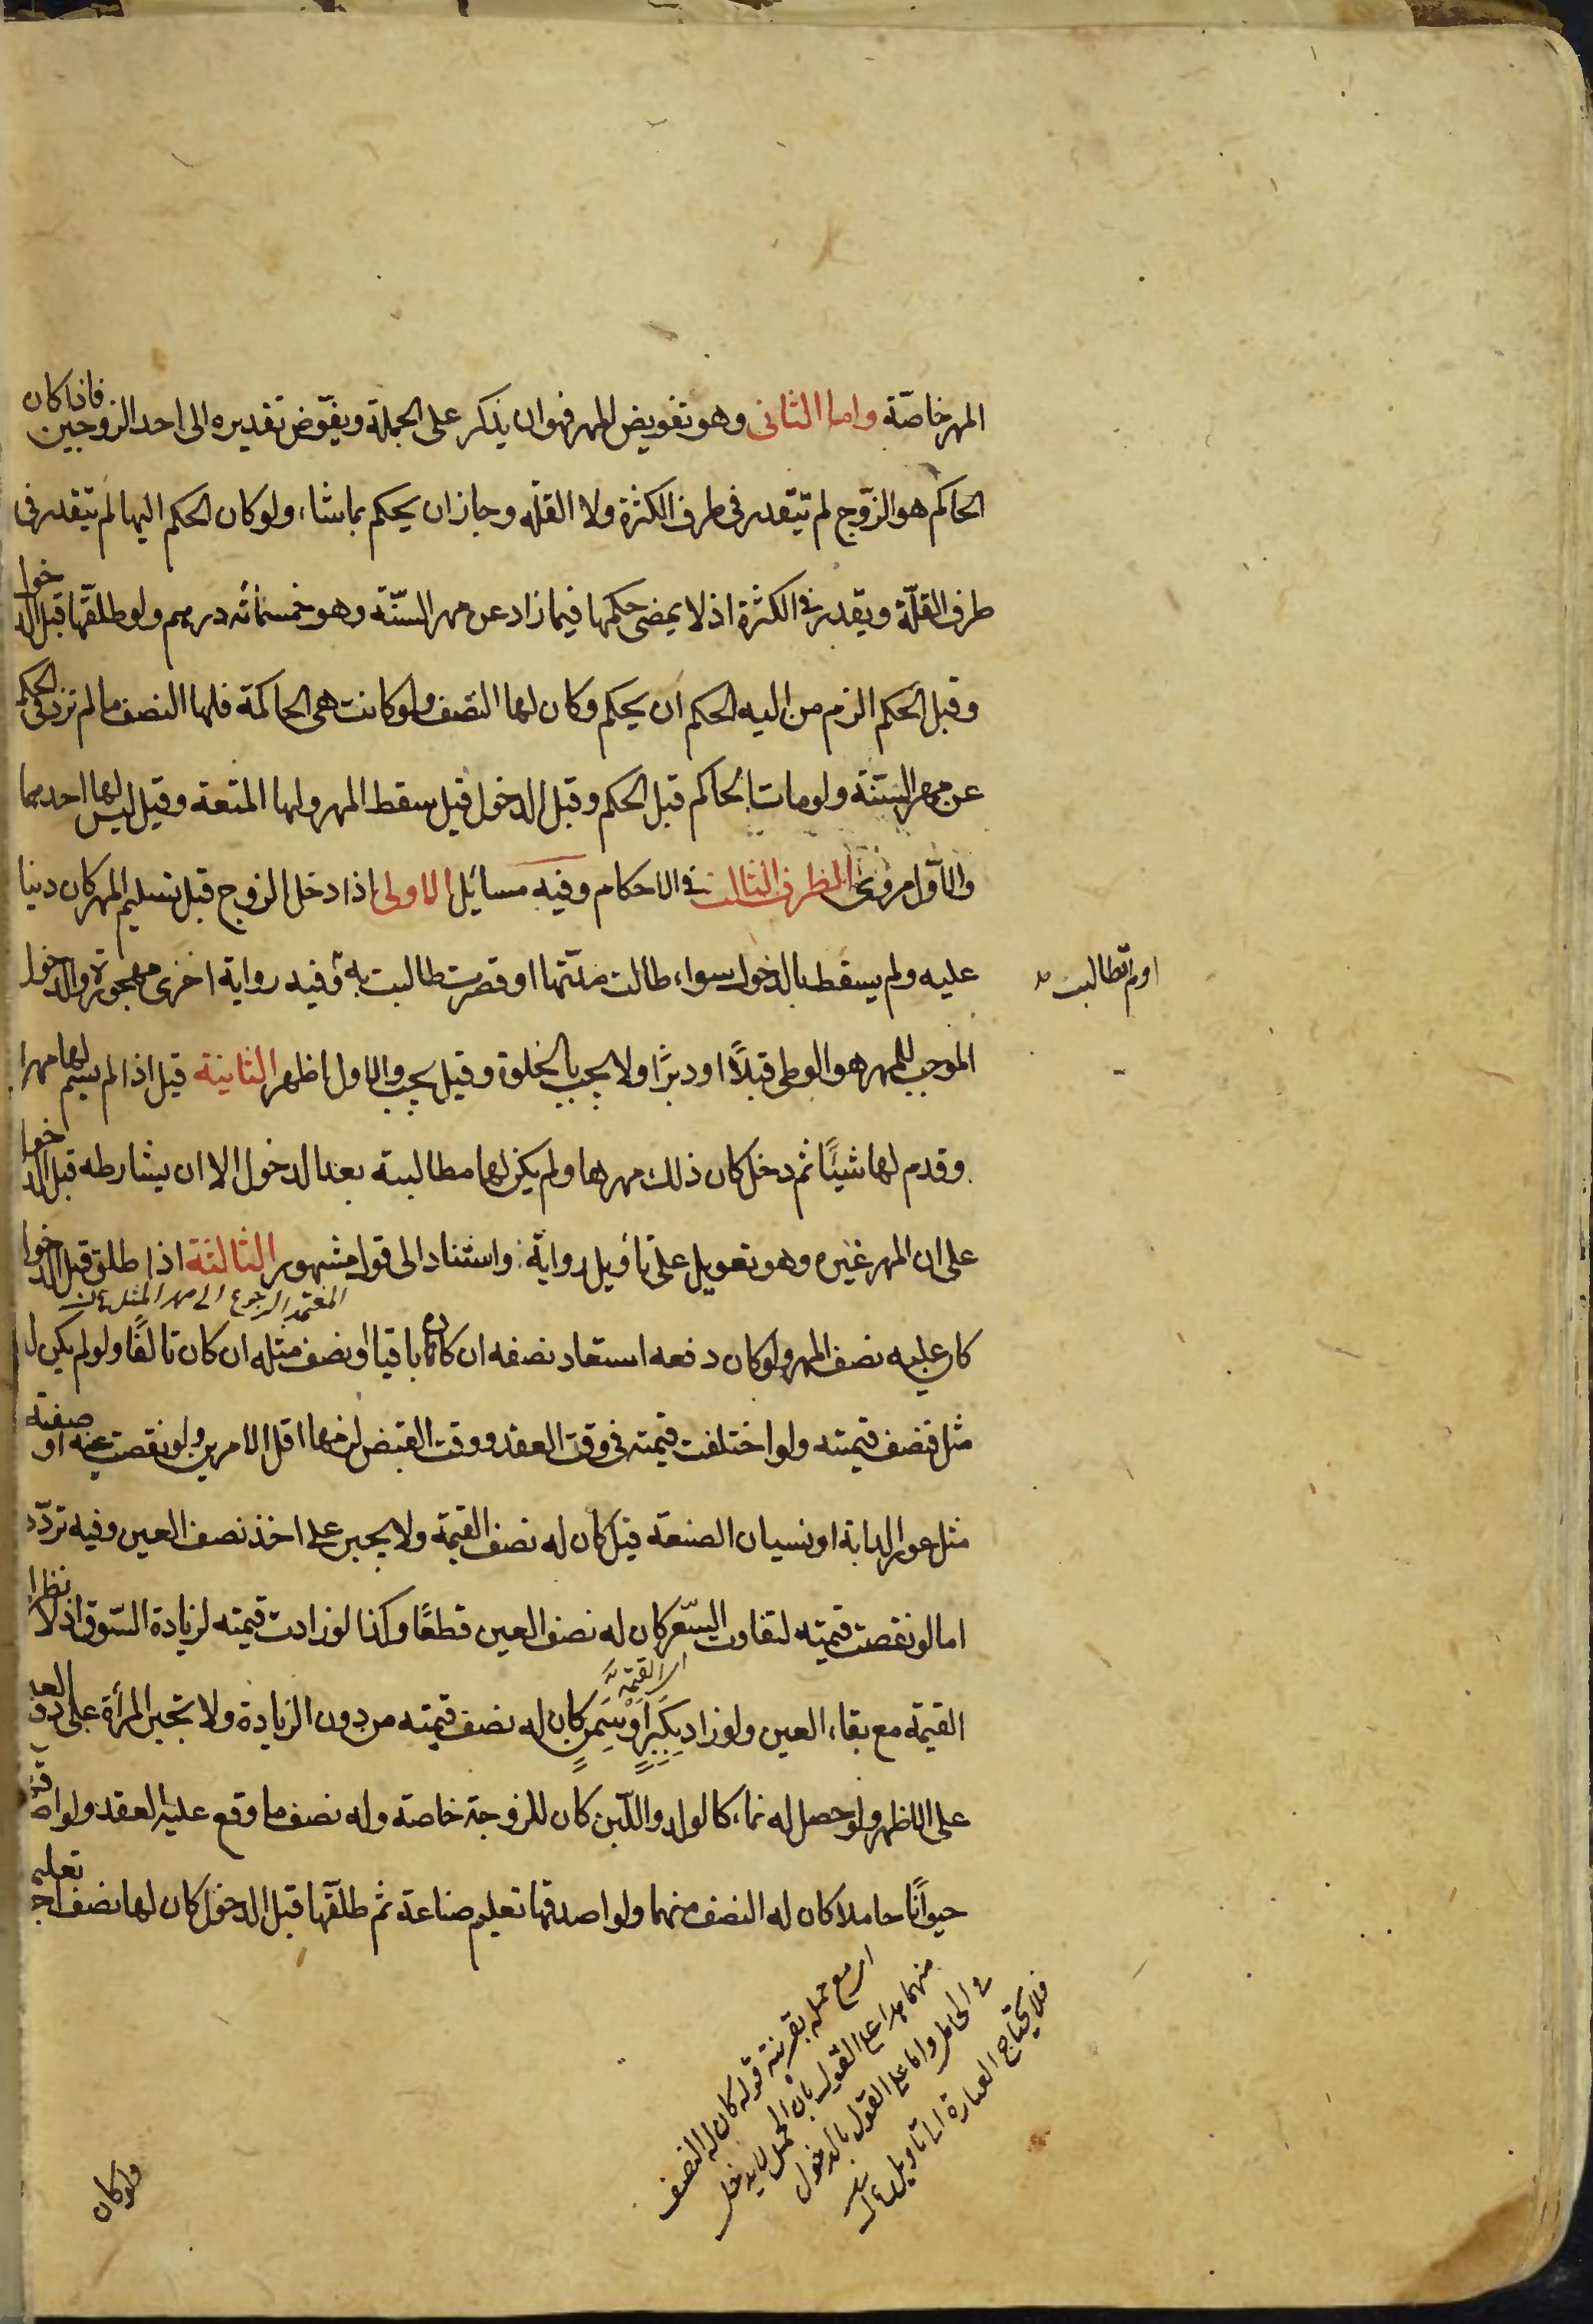 المهر خاصّة واما الثانى وهو تفويض المهر فهو ان يذكر على الجملة ويفوّض تقديره الى احد الزوجين فاذا كان
الحاكم هو الزّوج لم يتقدر فى طرف الكثرة ولا القلّه وجاز ان يحكم بما شاء ولو كان الحكم اليها لم يتقدر فى
طرف القلّة ويقدر فى الكثرة اذ لا يمضى حكمها فيما زاد عن مهر السنّة وهو خمسمائه درهم ولو طلقها قبل الدخول
وقبل الحكم الزم من اليه الحكم ان يحكم وكان لها النصف ولو كانت هى الحاكمة فلها النصف ما لم تزد فى الحكم
عن مهر السنّة ولو مات الحاكم قبل الحكم وقبل الدخول قيل سقط المهر ولها المتعة وقيل ليس لها احدهما
والاوّل مروىّ الطرف الثالث فى الاحكام وفيه مسائل الاولى اذا دخل الزوج قبل تسليم المهر كان دينا
عليه ولم يسقط بالدخول سواء طالت مدّتها او قصرت طالبت به وفيه رواية اخرى مهجورة والدخول
او لم تطالب
الموجب للمهر هو الوطى قبلاً او دبرًا ولا يجب بالخلوة وقيل يجب والاول اظهر الثانية قيل اذا لم يسم لها مهرا
وقدم لها شيئًا ثم دخل كان ذلك مهرها ولم يكن لها مطالبته بعد الدخول الا ان يشارطه قبل الدخول
على ان المهر غيره وهو تعويل على تأويل رواية واستناد الى قول مشهور الثالثة اذا طلق قبل الدخول
المعتمد الرجوع الى مهر المثل
كان عليه نصف المهر ولو كان دفعه استعاد نصفه ان كان باقيا او نصف مثله ان كان تالفًا ولو لم يكن له
مثل فنصف قيمته ولو اختلفت قيمته فى وقت العقد ووقت القبض لزمها اقل الامرين ولو نقصت عينه او صفته
مثل عور الدابة او نسيان الصنعة قيل كان له نصف القيمة ولا يجبر على اخذ نصف العين وفيه تردّد
اما لو نقصت قيمته لتفاوت السّعر كان له نصف العين قطعًا وكذا لو زادت قيمته لزيادة السّوق اذ لا نظر الى
القيمة مع بقاء العين ولو زاد بكِبَرٍ او سِمَنٍ كان له نصف قيمته من دون الزيادة ولا تجبر المرأة على دفع العين
اى القيمة
على الاظهر ولو حصل له نماء كالولد واللّبن كان للزوجة خاصة وله نصف ما وقع عليه العقد ولو اصدقها
حيوانًا حاملا كان له النصف منهما ولو اصدقها تعليم صناعة ثم طلقها قبل الدخول كان لها نصف اجرة تعليمها
اى مع حمله بقرينة قوله كان له النصف
منهما هذا على القول بان الحمل لا يدخل
فى الحامل واما على القول بالدخول
فلا يحتاج العبارة الى تاويل
ولو كان